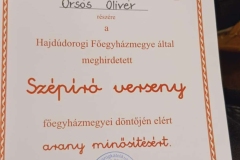 Orsós Olivér
részére
a
Hajdúdorogi Főegyházmegye által
meghirdetett
Szépíró verseny
főegyházmegyei döntőjén elért
arany minősítésért.